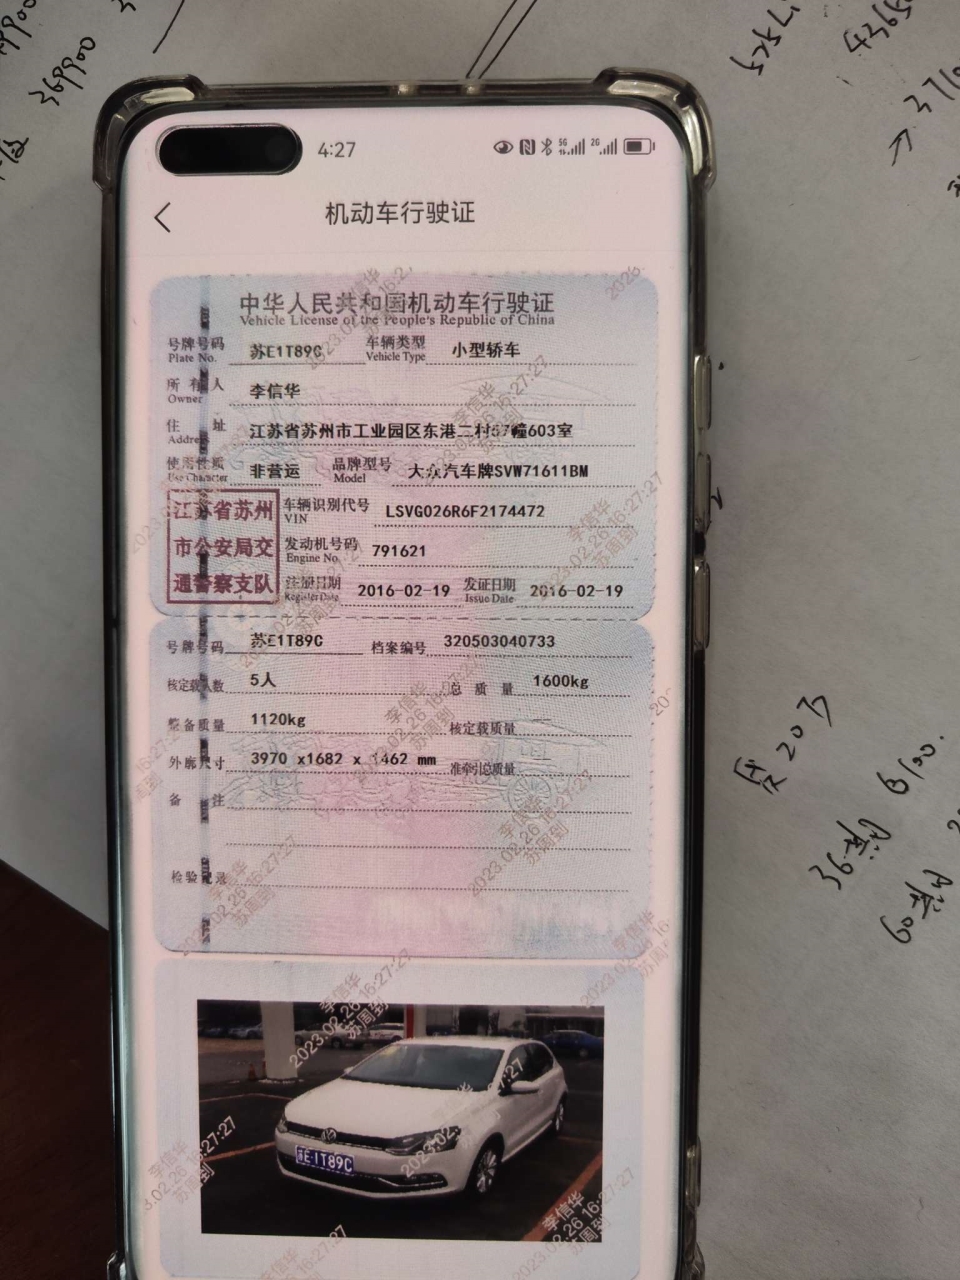 369900
4:27
机动车行驶证
中华人民共和国机动车行驶证
Vehicle License of the People's Republic of China
号牌号码 苏E1T89C 车辆类型 小型轿车
Plate No. Vehicle Type
所有人 李信华
Owner
住址 江苏省苏州市工业园区东港二村67幢603室
Address
使用性质 非营运 品牌型号 大众汽车牌SVW71611BM
Use Character Model
江苏省苏州
市公安局交
通警察支队
车辆识别代号 LSVG026R6F2174472
VIN
发动机号码 791621
Engine No.
注册日期 2016-02-19 发证日期 2016-02-19
Register Date Issue Date
号牌号码 苏E1T89C 档案编号 320503040733
核定载人数 5人 总质量 1600kg
整备质量 1120kg 核定载质量
外廓尺寸 3970 x1682 x 1462 mm 准牵引总质量
备注
检验记录
苏E·1T89C
李信华
2023.02.26 16:27:27
苏周到
525Li
贷20万
36期
6100.
60期